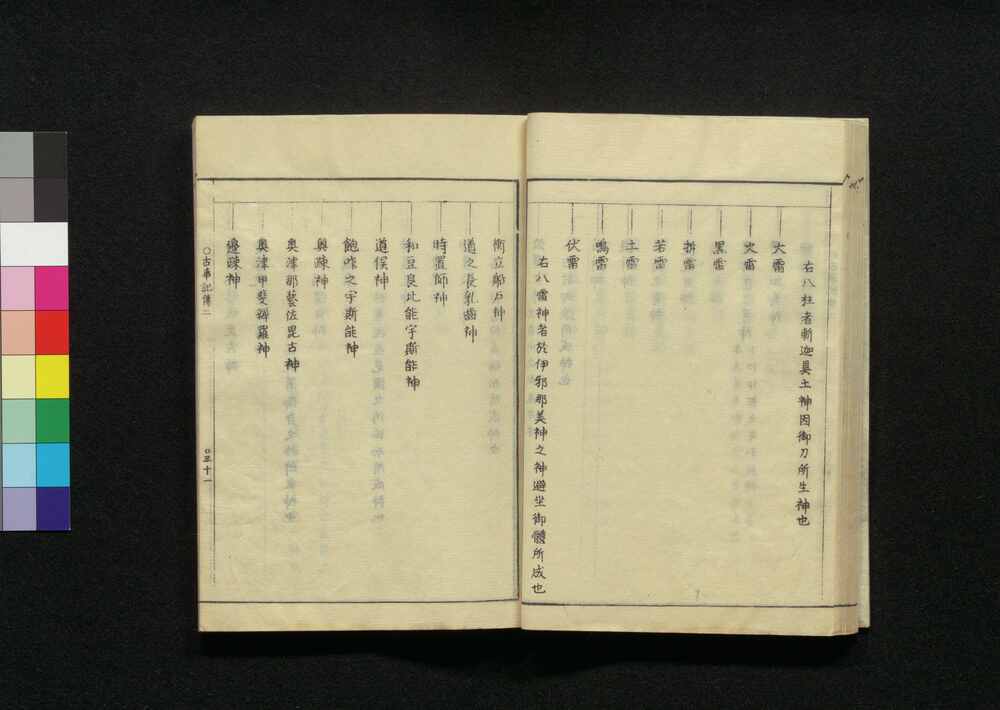 右八柱者斬迦具土神因御刀所生神也
大雷
火雷
黒雷
拆雷
若雷
土雷
鳴雷
伏雷
右八雷神者於伊邪那美神之神避坐御體所成也
衝立船戸神
道之長乳齒神
時置師神
和豆良比能宇斯能神
道俣神
飽咋之宇斯能神
奥疎神
奥津那藝佐毘古神
奥津甲斐辨羅神
邊疎神
○古事記傳二
○五十一